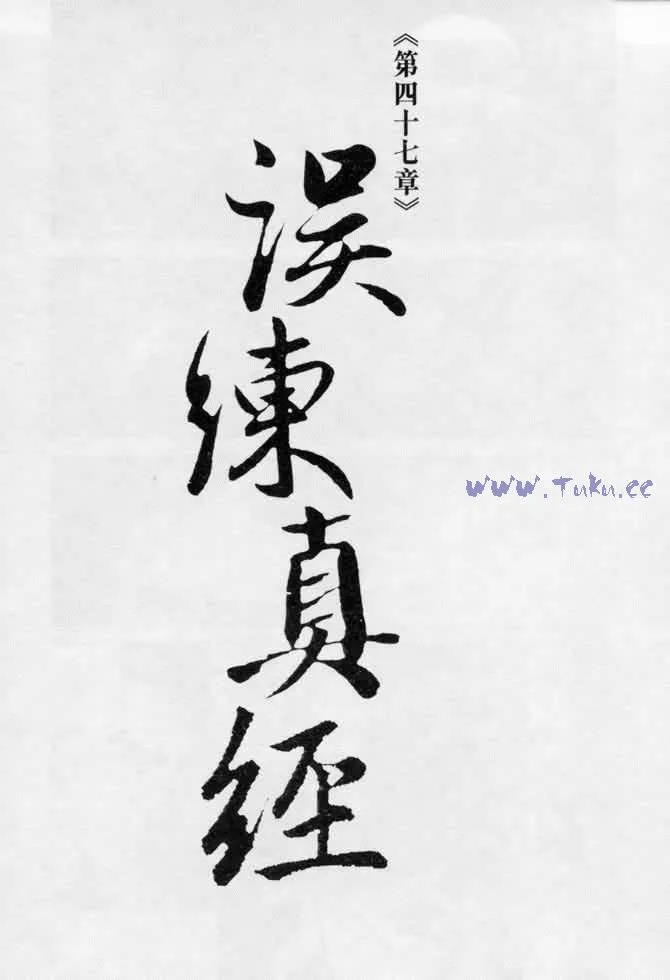 《第四十七章》
误練真經
www.Tuku.cc